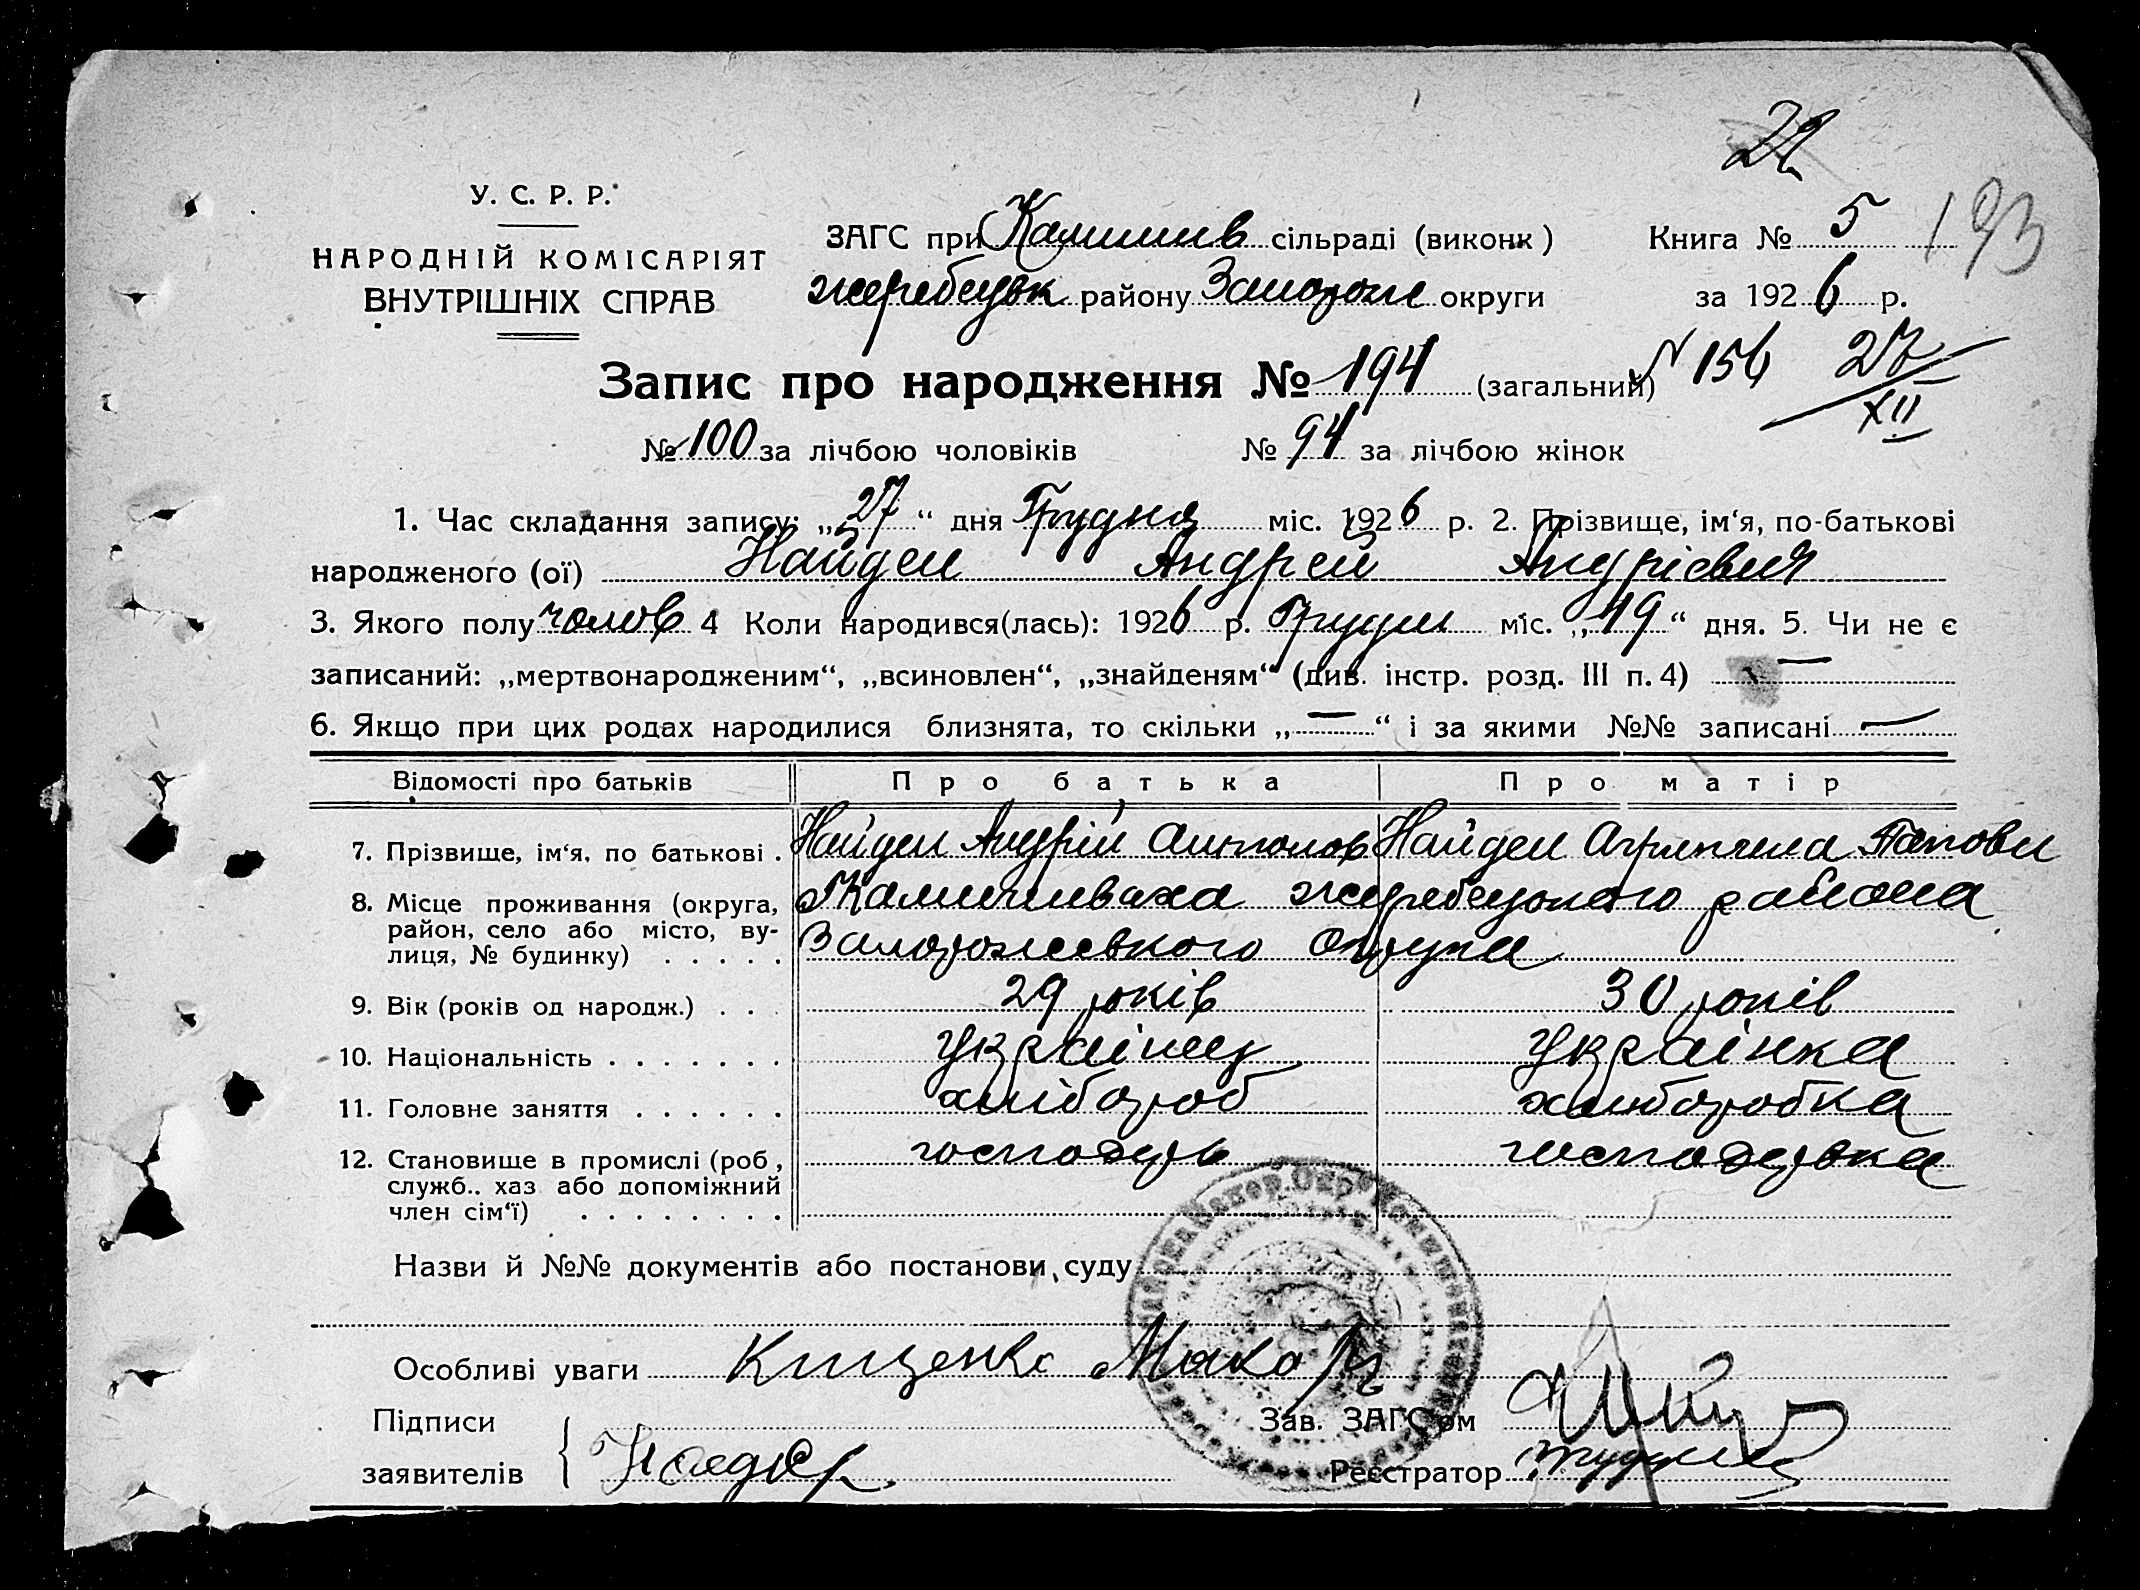 22
У. С. Р. Р.
НАРОДНІЙ КОМІСАРІЯТ
ВНУТРІШНІХ СПРАВ
ЗАГС при Камишив сільраді (виконк)
Жеребецьк району Запорож округи
Книга № 5
193
за 1926 р.
Запис про народження № 194 (загальний)
№ 156 27/XII
№ 100 за лічбою чоловіків № 94 за лічбою жінок
1. Час складання запису: „27“ дня Грудня міс. 1926 р. 2. Прізвище, ім‘я, по-батькові
народженого (ої) Найден Андрей Андрієвич
3. Якого полу чолов 4 Коли народився(лась): 1926 р. Грудня міс. „19“ дня. 5. Чи не є
записаний: „мертвонародженим“, „всиновлен“, „знайденям“ (див. інстр. розд. III п. 4) —
6. Якщо при цих родах народилися близнята, то скільки „—“ і за якими №№ записані —
Відомості про батьків Про батька Про матір
7. Прізвище, ім‘я, по батькові . Найден Андрій Антонов Найден Агрипина
8. Місце проживання (округа, Камишеваха Жеребецького района
район, село або місто, ву- Запорожського Округа
лиця, № будинку) . . . . .
9. Вік (років од народж.) . . . 29 років 30 років
10. Національність . . . . . . . українец українка
11. Головне заняття . . . . . . хлібороб хлиборобка
12. Становище в промислі (роб, господарь господарка
служб.. хаз або допоміжний
член сім‘ї) . . . . . . . .
Назви й №№ документів або постанови суду
Особливі уваги Кищенко Макар
Підписи
заявителів
Зав. ЗАГС‘ом
Реєстратор